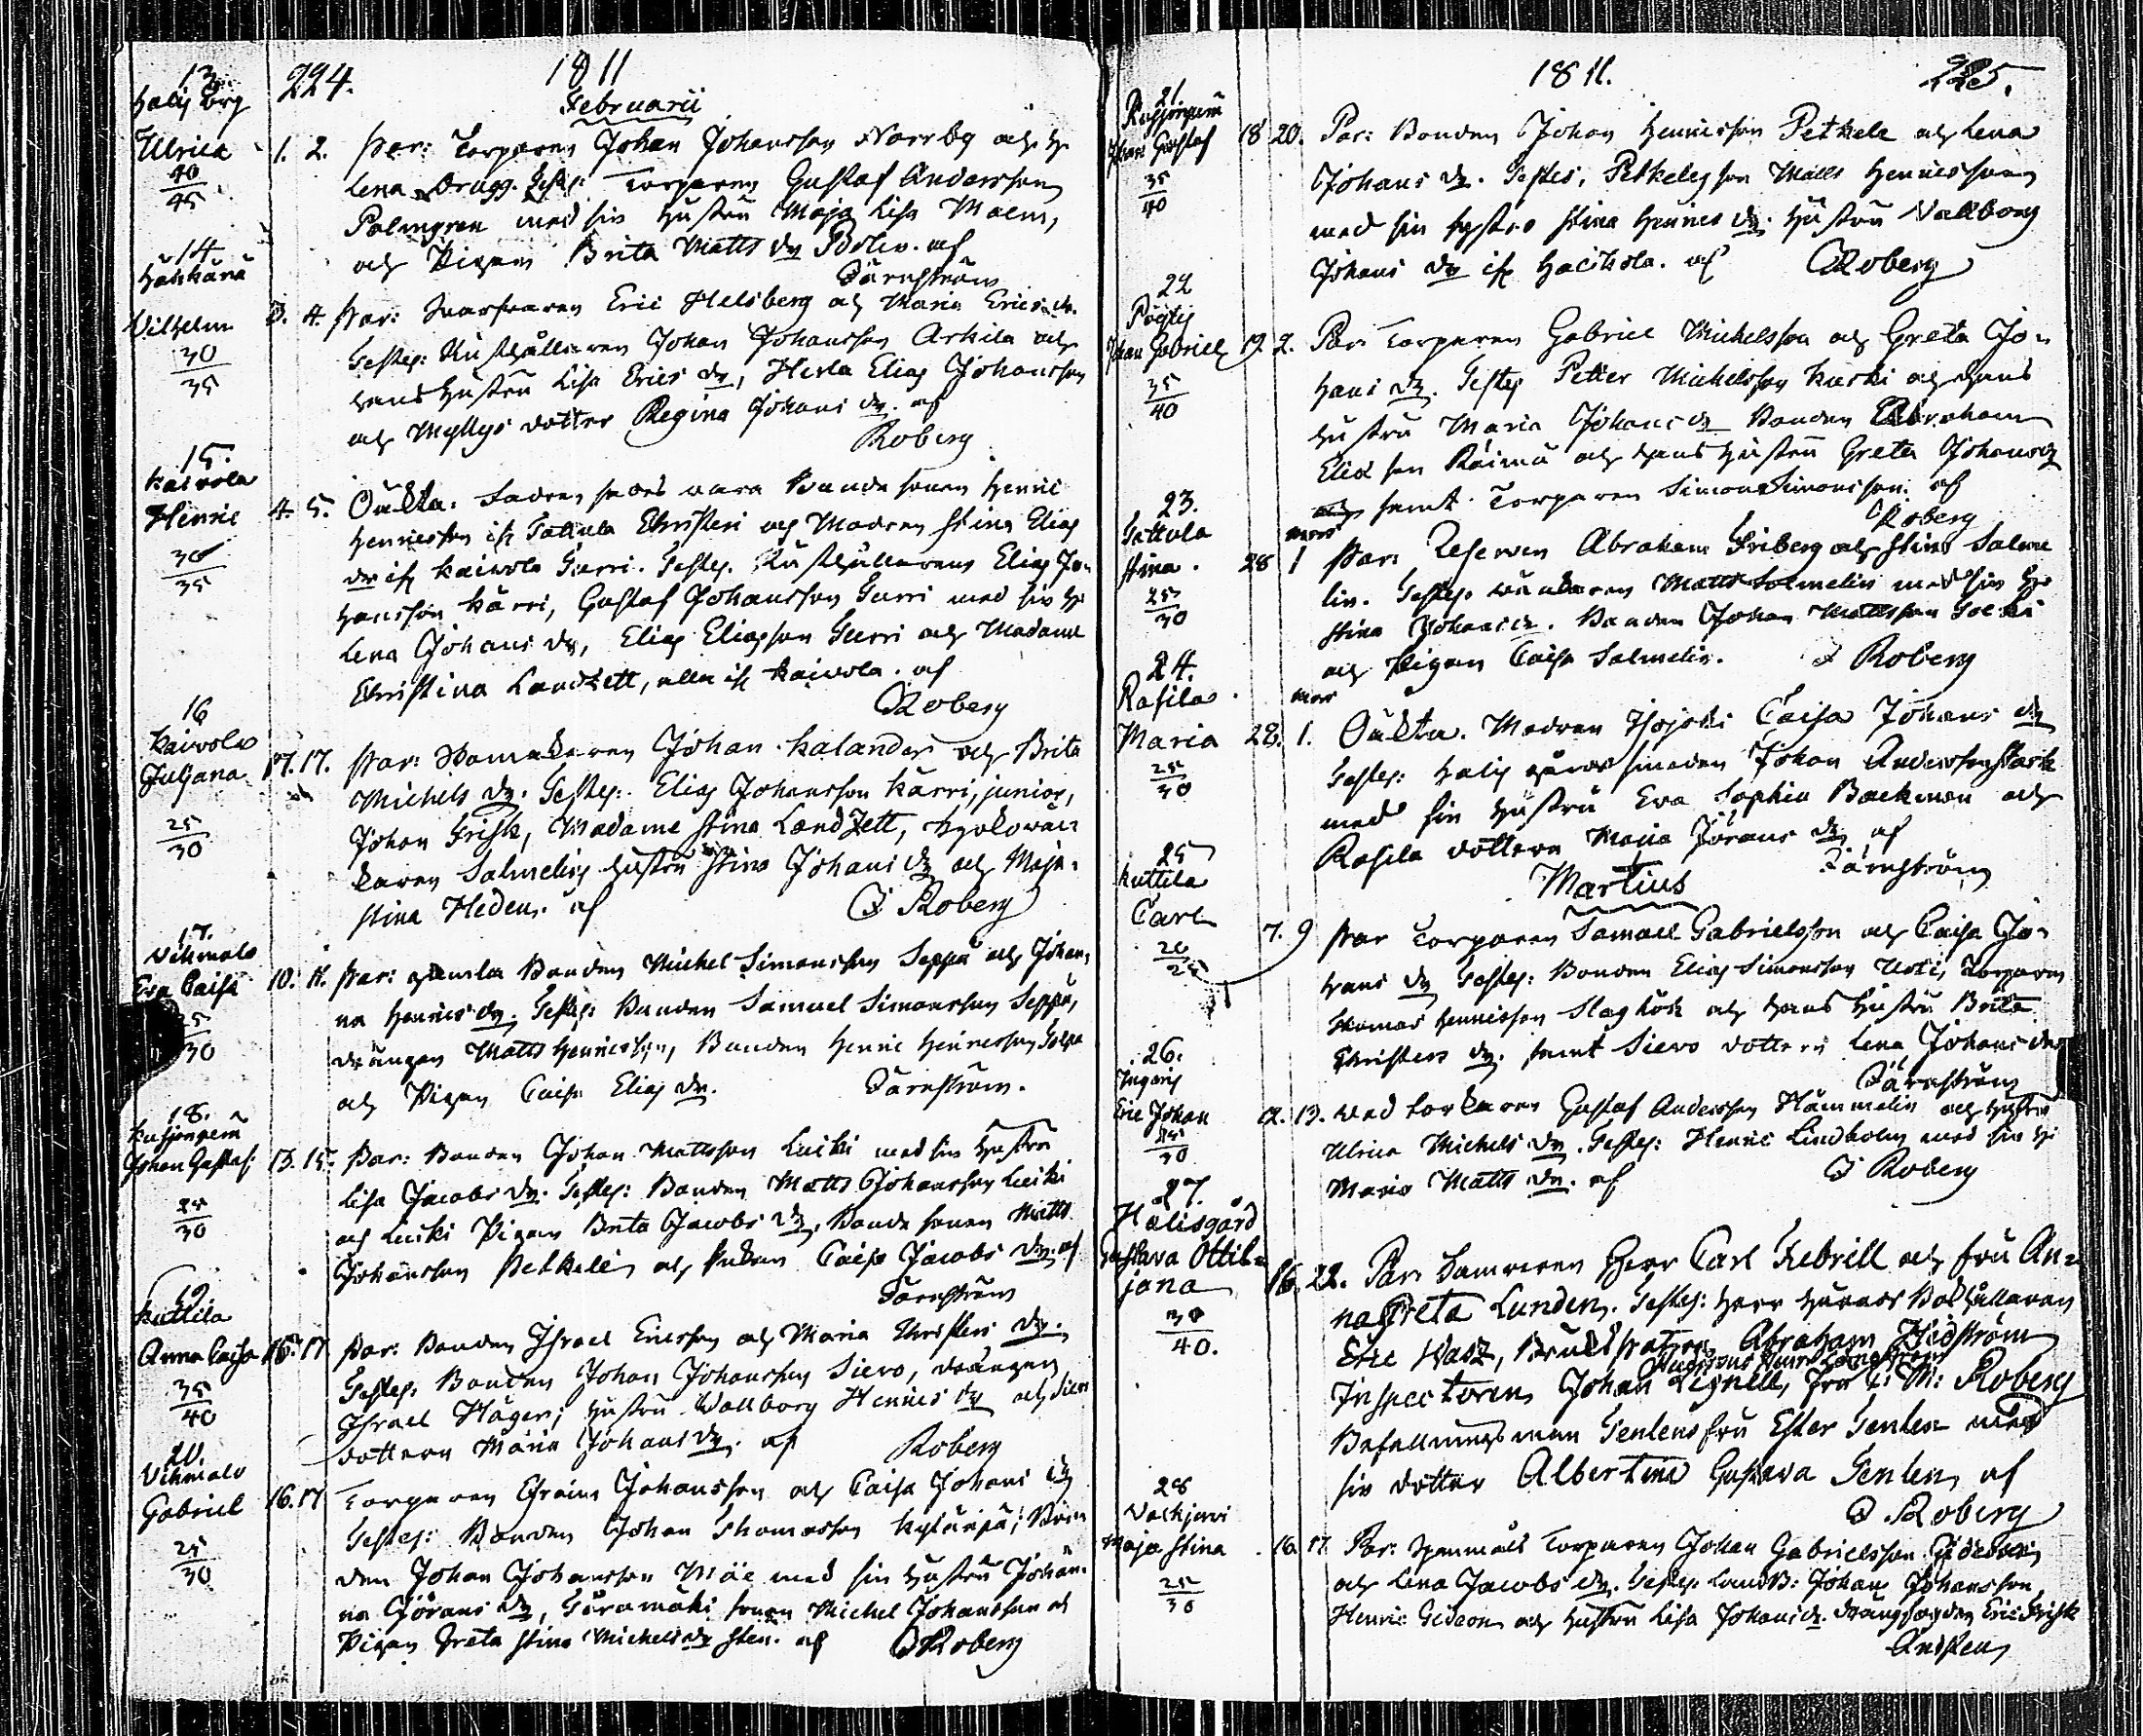 224.
1811
Februarii
13
Halis Berg
Ulrica
40
45
1. 2. Par: Torparen Johan Johansson Norrbg och h:
Lena Dragg. Testes: Torparen Gustaf Andersson
Palmgren med sin hustru Maja Lisa Malm,
och Pigan Brita Matts dr Bolin. af
Järnström
14
Hähkänä
Vilhelm
30
35
3. 4. Par: Svarfvaren Eric Helsberg och Maria Erics dr.
Testes: Rusthållaren Johan Johansson Arkila och
hans hustru Lisa Erics dr, Herla Elias Johansson
och Myllys dotter Regina Johans dr. af
Roberg
15.
Kaivola
Henric
30
35
4. 5. Oäkta. Fadren säges vara Bondesonen Henric
Henricsson ifr Tattula Christeri och Modren Stina Elias
dr ifr Kaivola Gurri. Testes. Rusthållarens Elias Jo-
hansson Kärri, Gustaf Johansson Gurri med sin h:
Lena Johans dr, Elias Eliasson Gurri och Madame
Christina Landzett, alla ifr Kaivola. af
Roberg
16
Kaivola
Juljana
25
30
17. 17. Par: Johan Kalander och Brita
Michels dr. Testes: Elias Johansson Kärri, junior,
Johan Frisk, Madame Stina Landzett, Kyrkowäc-
taren Salmelins hustru Stina Johans dr och Maja
Stina Heden. af J Roberg
17.
Vehmalo
Eva Caisa
25
30
10. 11. Par: gamla Bonden Michel Simonsson Seppä och Johan-
na Henrics dr. Testes: Bonden Samuel Simonsson Seppä,
drängen Matts Henricsson, Bonden Henric Henricsson
och Pigan Caisa Elias dr. Järnström.
18.
Kusjonperä
Johan Gustaf
25
30
13. 15. Par: Bonden Johan Mattsson Luiki med sin hustru
Lisa Jacobs dr. Testes: Bonden Matts Johansson Luiki
och Luiki Pigan Brita Jacobs dr, Bondesonen Matts
Johansson Petkele, och Caisa Jacobs dr. af
Järnström
19.
Kuttila
Anna Caisa
35
40
15. 17 Par: Bonden Israel Ericsson och Maria Christers dr.
Testes: Bonden Johan Johansson Sievo, drängen
Israel Häger, hustru Wallborg Henrics dr och Sievo
dottern Maria Johans dr. af Roberg
20.
Vehmalo
Gabriel
25
30
16. 17 Torparen Efraim Johansson och Caisa Johans dr
Testes: Bonden Johan Thomasson Kylänpä, Bon-
den Johan Johansson Mäe med sin hustru Johan-
na Görans dr, Göramäki sonen Michel Johansson och
Pigan Greta Stina Michels dr Sten. af J Roberg
1811.
225.
21.
Kusjonperä
Johan Gustaf
35
40
18 20. Par: Bonden Johan Henricsson Petkele och Lena
Johans dr. Testes, Petkeles son Matts Henricsson
med sin syster Stina Henrics dr. hustru Wallborg
Johans dr ifr Hacitola. af Roberg
22
Pöytis
Johan Gabriel
35
40
19. 2. Par Torparen Gabriel Michelsson och Greta Jo-
hans dr. Testes Petter Michelsson Kurki och hans
hustru Maria Johans dr Bonden Abraham
Eliasson Raimu och hans hustru Greta Johans dr
samt Torparen Simon Simonsson. af
Roberg
23.
Tattula
Stina.
25
30
mars
28 1 Par: Reserven Abraham Friberg och Stina Salme-
lin. Testes Matts Salmelin med sin h:
Stina Johans dr. Bonden Johan Mattsson
och Pigan Caisa Salmelin. J Roberg
24.
Rasila
Maria
25
30
mars
28. 1. Oäkta. Modren Caisa Johans dr
Testes: Halis gårds smeden Johan Andersson Stark
med sin hustru Eva Sophia Backman och
Rasila dottern Maja Görans dr af
Järnström
Martius
25
Kuttila
Carl
20
25
7. 9 Par Torparen Samuel Gabrielsson och Caisa Jo-
hans dr Testes: Bonden Elias Simonsson Uoti, Torparen
Thomas Henricsson Slaghök och hans hustru Brita
Christers dr. samt Sievo dottern Lena Johans dr
Järnström
26.
Ingeris
Eric Johan
25
30
12. 13. Gustaf Andersson Hämmelin och hustru
Ulrica Michels dr. Testes: Henric Lindholm med sin h:
Maria Matts dr. af J Roberg
27.
Halisgård
Gustava Ottil-
jana
30
40.
16. 22. Par: Herr Carl Febrill och fru An-
na Greta Lunden. Testes: Herr Härads Bokhållaren
Eric Wasz, Bruks Patron Abraham Hedström
Inspectoren Johan Lignell, fru C: M: Roberg
Befallningsman Genlens fru Ester Genlen med
sin dotter Albertina Gustava Genlen, af
J Roberg
28
Vaskjervi
Maja Stina
25
30
16. 17. Par: Torparen Johan Gabrielsson Gideon
och Lena Jacobs dr. Testes LandtB: Johan Johansson,
Henric Gideon och hustru Lisa Johans dr. Eric Frisk